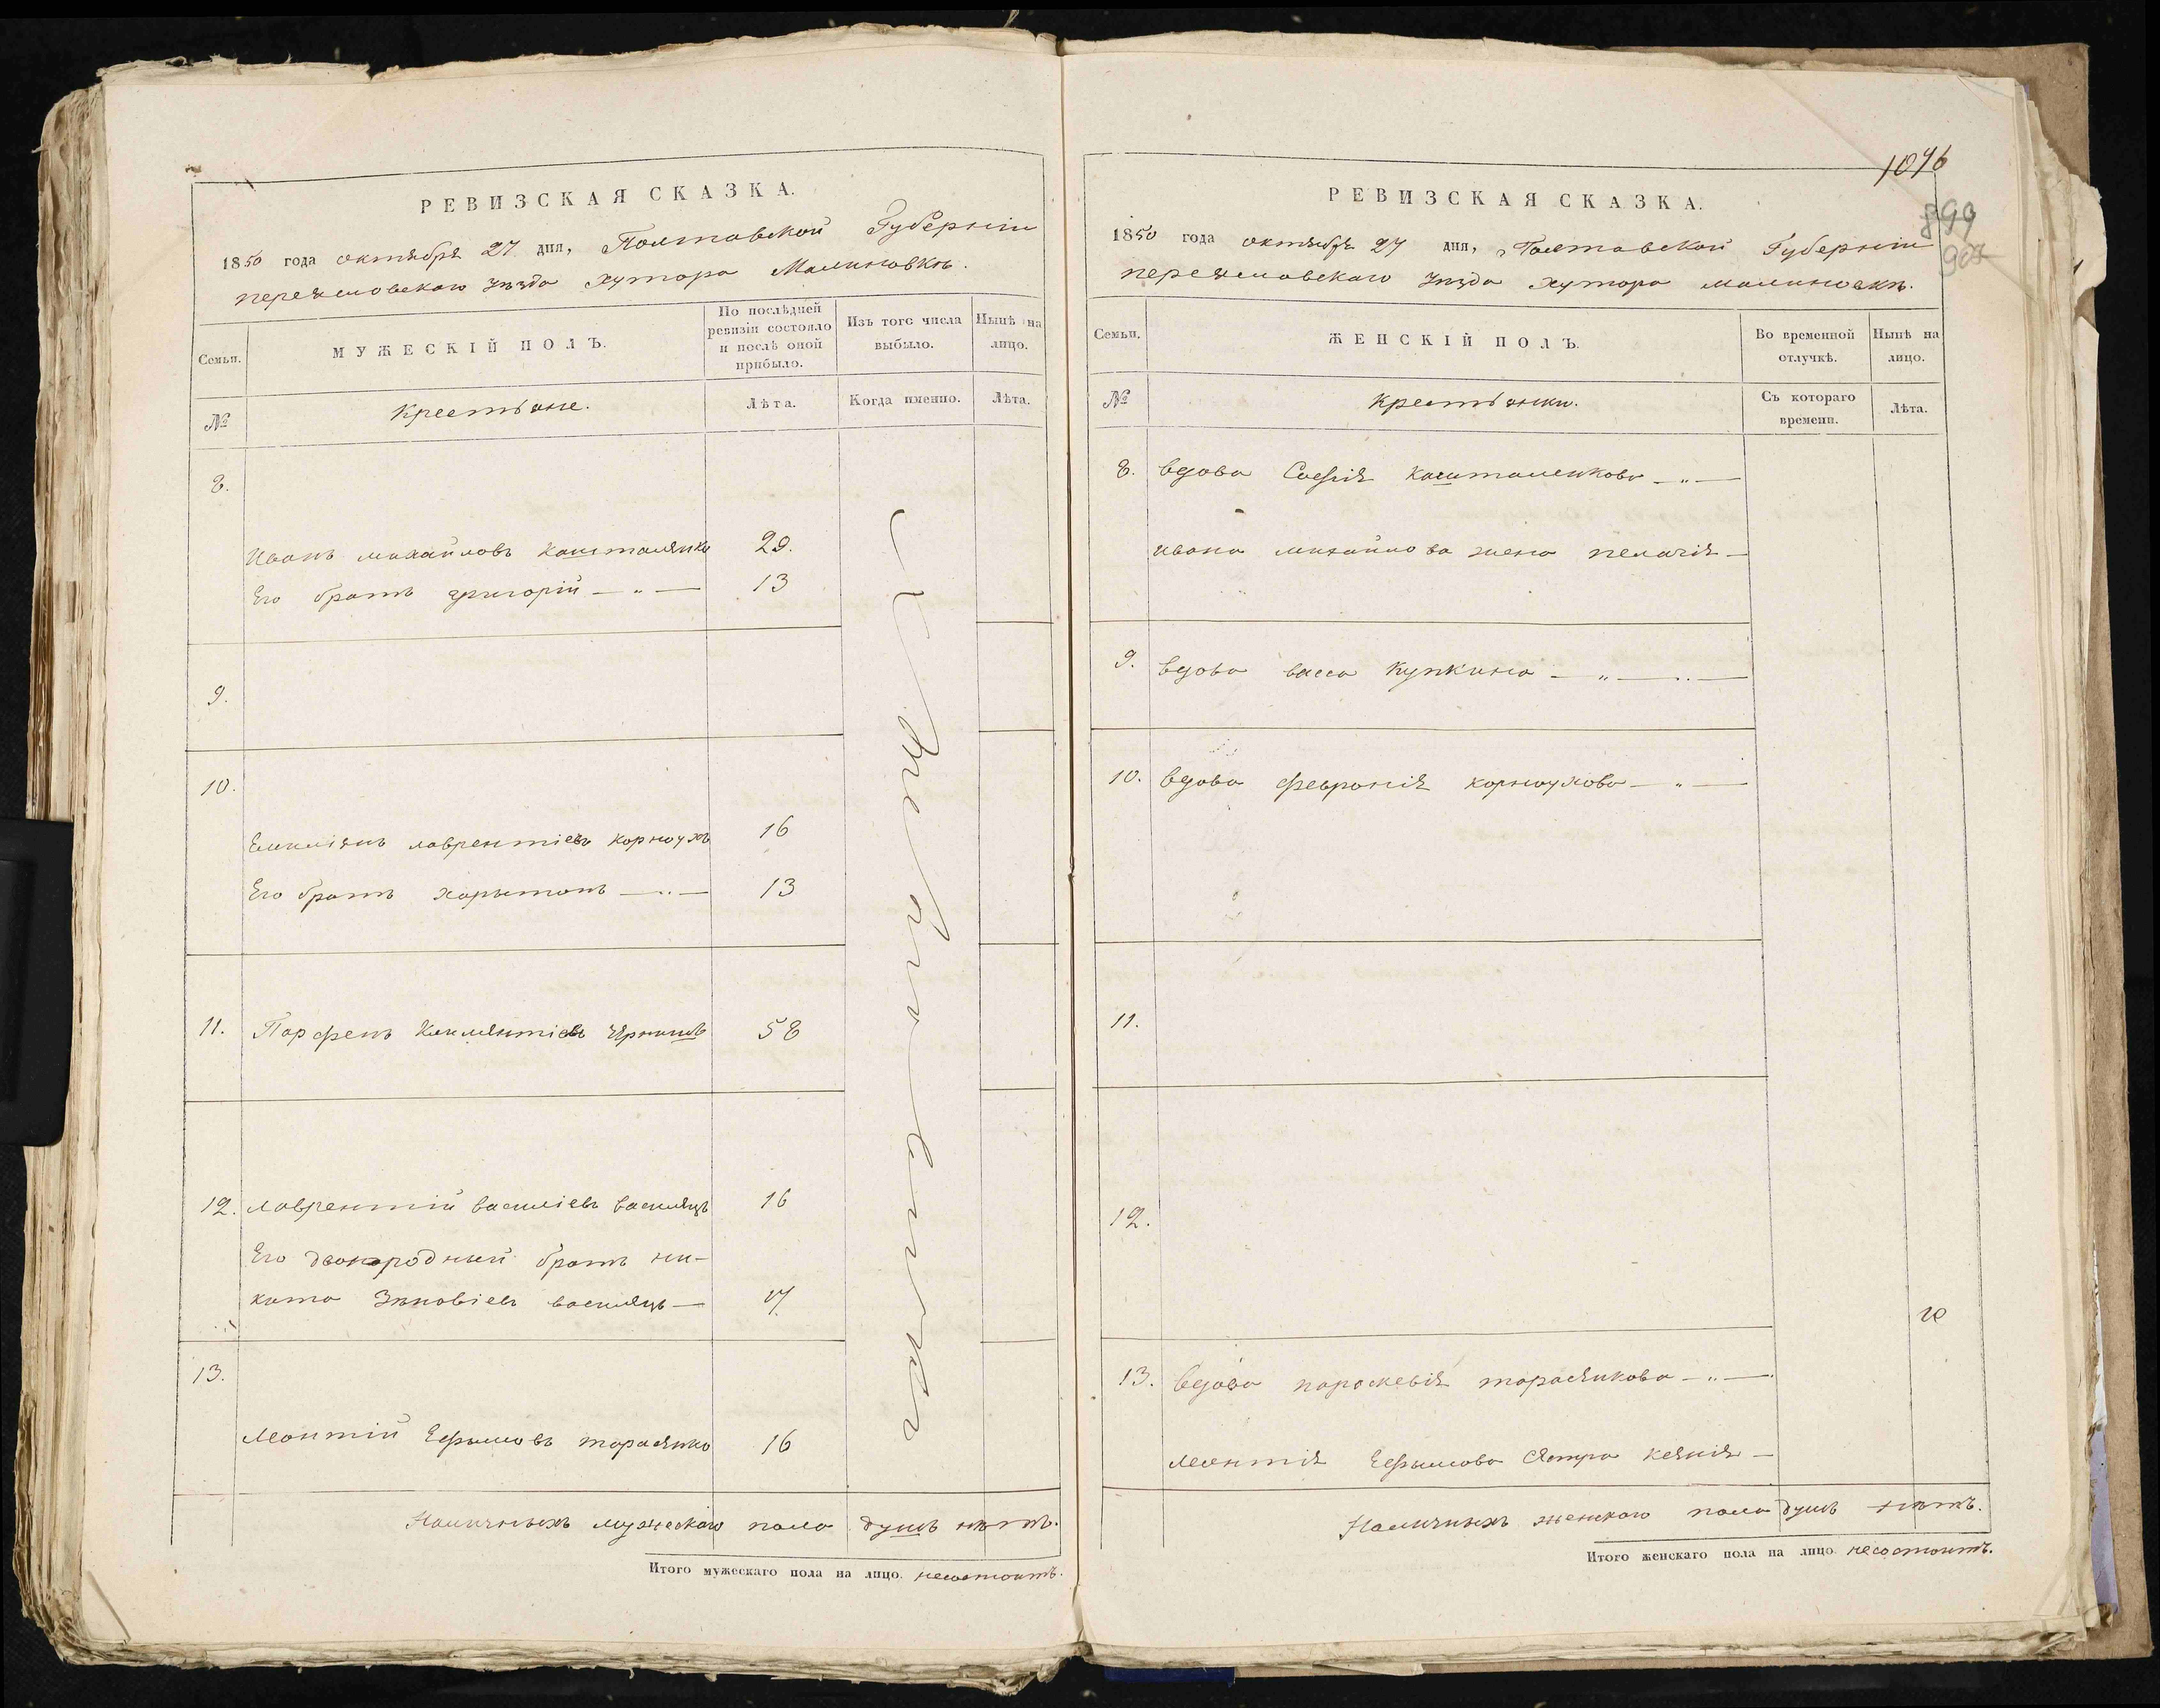 РЕВИЗСКАЯ СКАЗКА.
1850 года октября 27 дня, Полтавской Губерніи
переяславского уѣзда хутора Малиновкѣ.
Семьи.
МУЖЕСКІЙ ПОЛЪ.
По послѣдней ревизіи состояло и послѣ оной прибыло.
Изъ того числа выбыло.
Нынѣ на лицо.
№
Крестьяне.
Лѣта.
Когда именно.
Лѣта.
8.
Иванъ михайловъ Кашталянко 29.
Его братъ григорій — „ — 13
9.
10.
Емиліянъ лаврентіевъ корноухъ 16
Его братъ харытонъ — „ — 13
11. Парфенъ Климентіевъ 58
12. лаврентій василіевъ василяцъ 16
Его двоюродный братъ ни-
кита Зѣновіевъ василяцъ — 17
13.
Леонтій Ефымовъ тарасянко 16
Наличныхъ мужескаго пола душъ нѣтъ.
Итого мужескаго пола на лицо. несостоитъ.
1046
899
РЕВИЗСКАЯ СКАЗКА.
1850 года октября 27 дня, Полтавской Губерніи
переяславскаго уѣзда хутора малиновкѣ.
Семьи.
ЖЕНСКІЙ ПОЛЪ.
Во временной отлучкѣ.
Нынѣ на лицо.
№
Крестьянки.
Съ котораго времени.
Лѣта.
8. вдова Софія Кашталенкова — „ —
ивана михайлова жена пелагія —
9. вдова васса Купкина — „ — „ —
10. вдова февронія корноухова — „ —
11.
12.
13. вдова параскевія тарасянкова — „ —
леонтія Ефымова сястра ксянія —
Наличныхъ женскаго пола душъ нѣтъ.
Итого женскаго пола на лицо. несостоитъ.